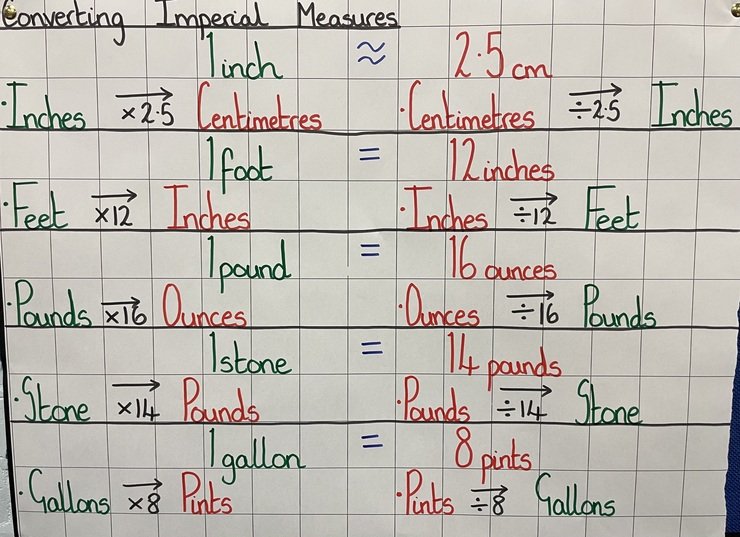 Converting Imperial Measures
1 inch ≈ 2.5 cm
·Inches → ×2.5 Centimetres ·Centimetres → ÷2.5 Inches
1 foot = 12 inches
·Feet → ×12 Inches ·Inches → ÷12 Feet
1 pound = 16 ounces
·Pounds → ×16 Ounces ·Ounces → ÷16 Pounds
1 stone = 14 pounds
·Stone → ×14 Pounds ·Pounds → ÷14 Stone
1 gallon = 8 pints
·Gallons → ×8 Pints ·Pints → ÷8 Gallons